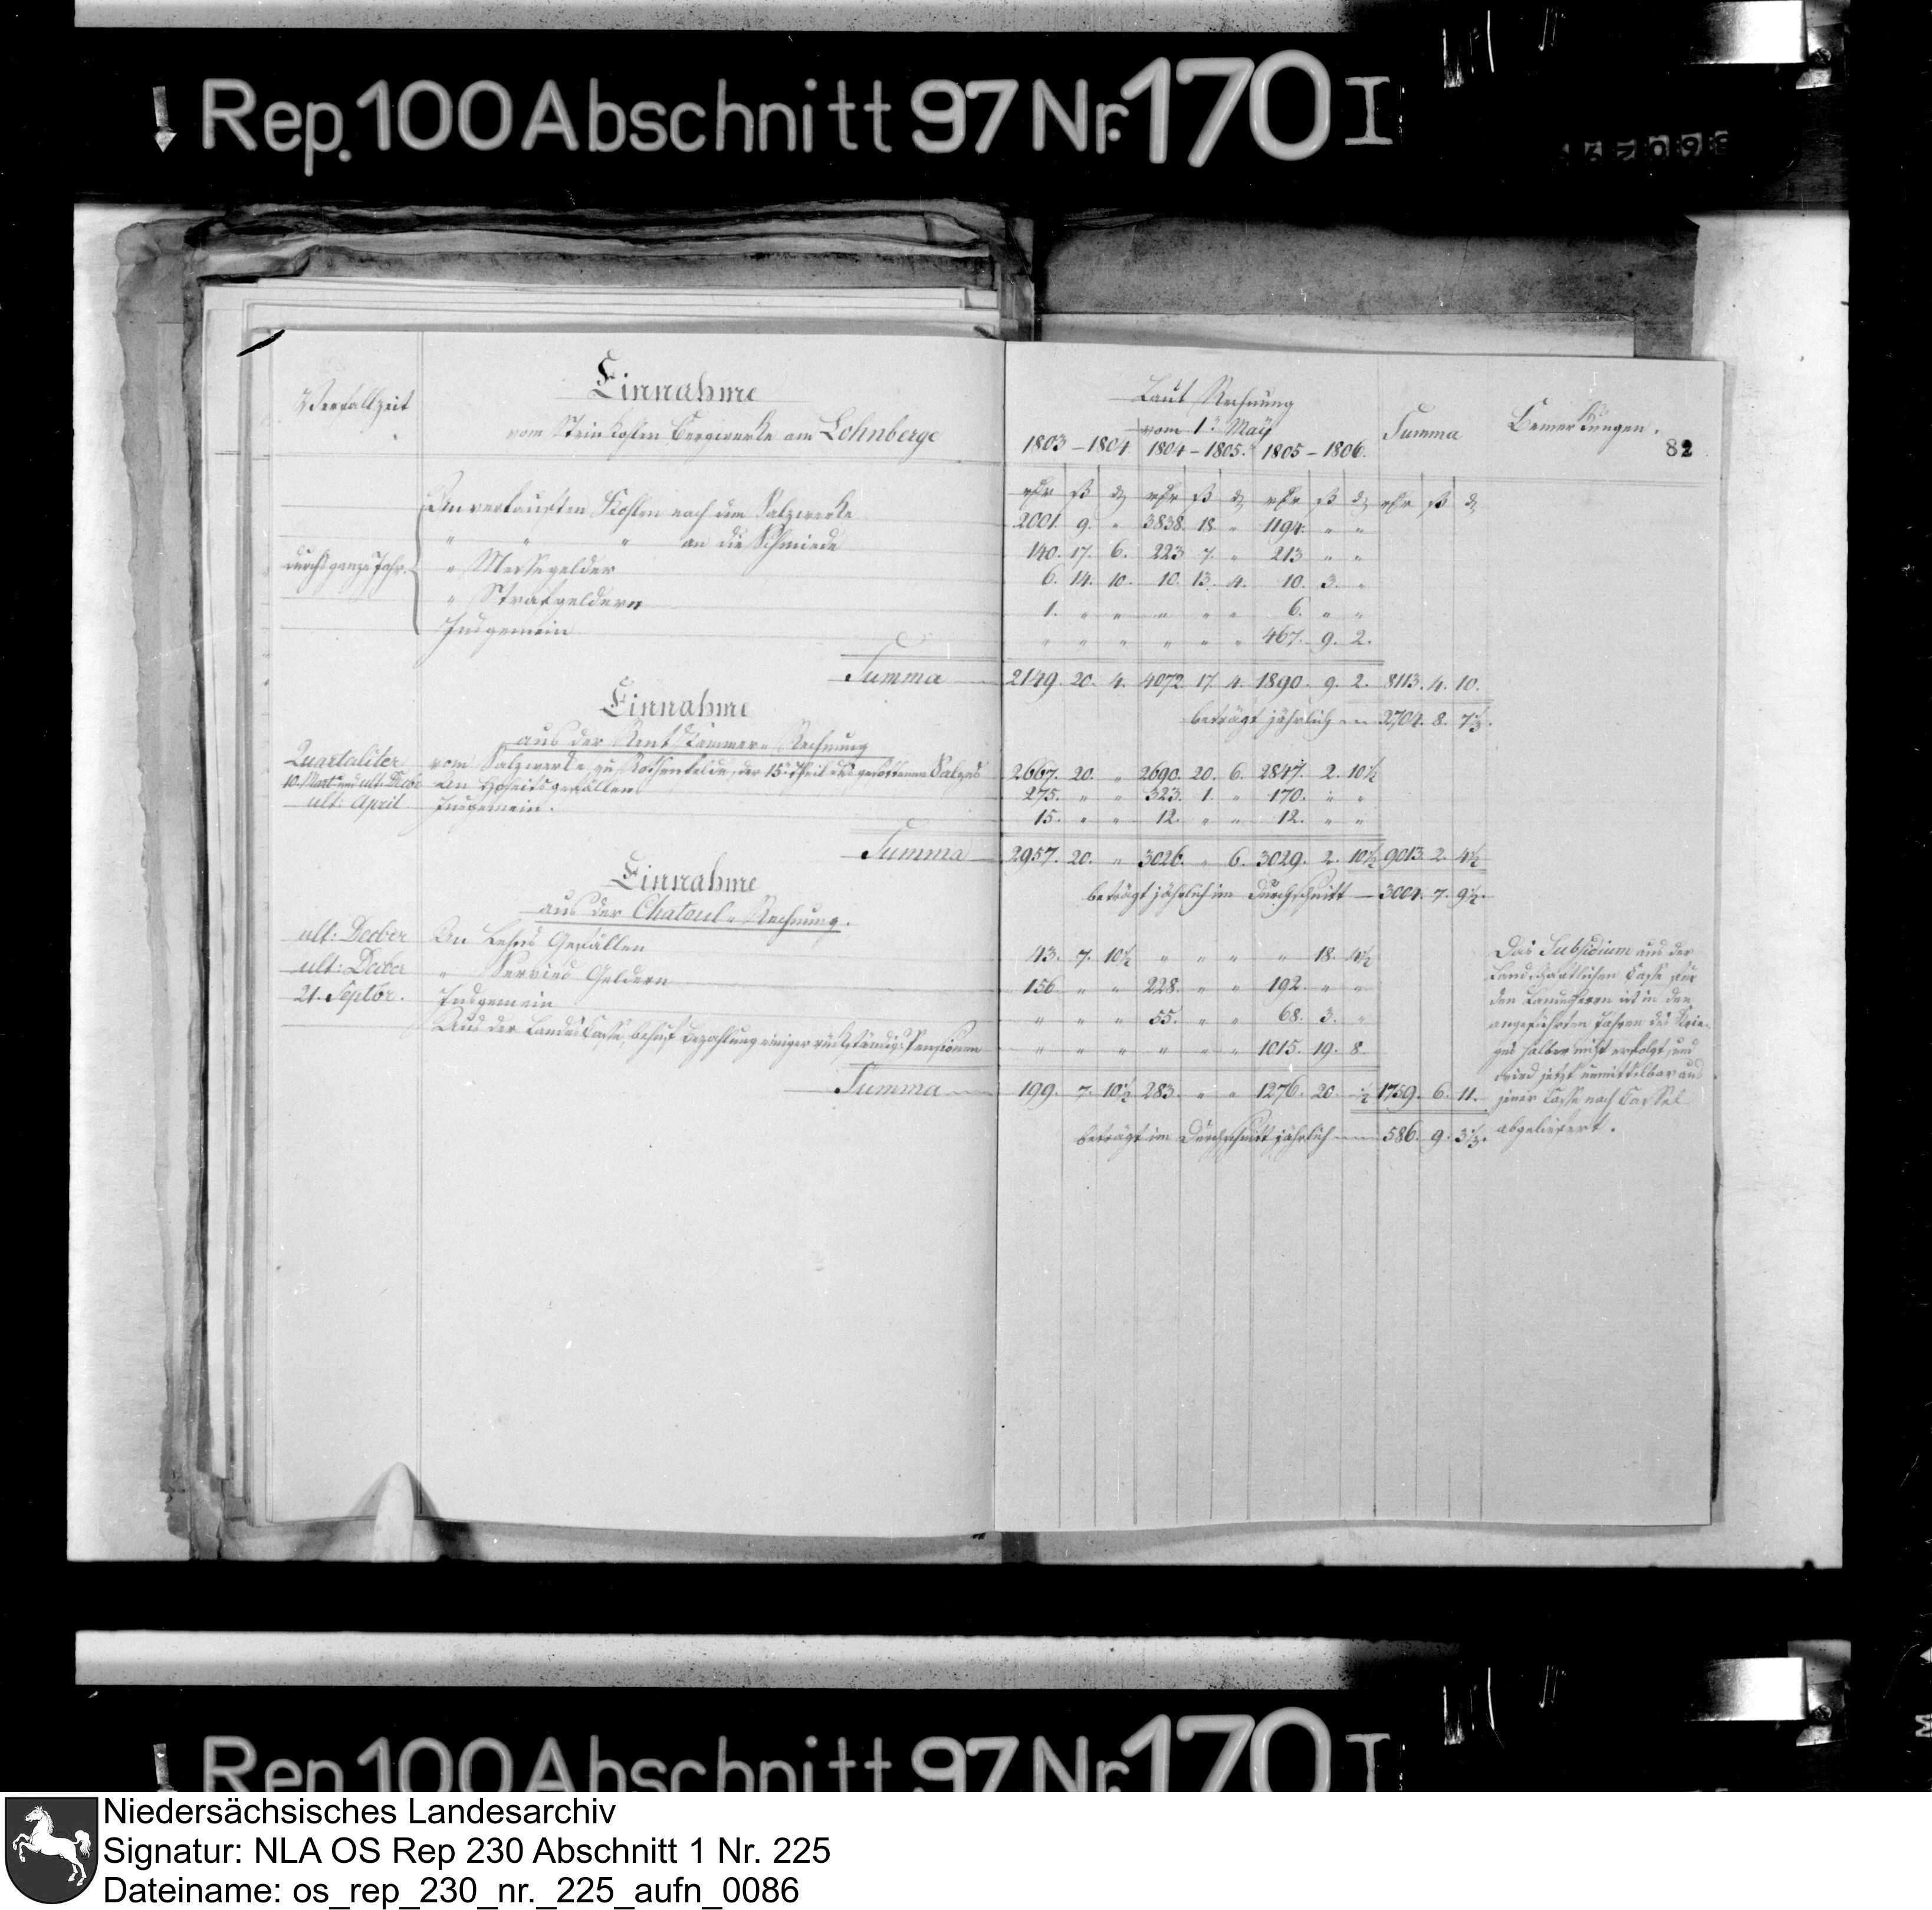 Rep. 100 Abschnitt 97 Nr. 170 I
Verfallzeit
Einnahme
vom Steinkohlen Bergwerke am Lohnberge
Laut Rechnung
vom 1t May
1803 – 1804. 1804 – 1805. 1805 – 1806.
Summa
Bemerkungen.
82
rthr ß d rthr ß d rthr ß d rthr ß d
durchs ganze Jahr.
An verkauften Kohlen nach dem Salzwerke 2001. 9. " 3838. 18. " 1194. " "
" " " an die Schmiede 140. 17. 6. 223. 7. " 213 " "
" Messegelder 6. 14. 10. 10. 13. 4. 10. 3. "
" Strafgeldern 1. " " " " " 6. " "
Insgemein " " " " " " 467. 9. 2.
Summa 2149. 20. 4. 4072. 17. 4. 1890. 9. 2. 8113. 4. 10.
beträgt jährlich 2704. 8. 7⅓.
Einnahme
aus der Rentkammer-Rechnung
Quartaliter vom Salzwerke zu Rothenfelde, der 15te Theil des gesottenen Salzes 2667. 20. " 2690. 20. 6. 2847. 2. 10½
10. Mart: und ult: Decbr An Hoheitsgefällen 275. " " 323. 1. " 170. " "
ult: April Insgemein. 15. " " 12. " " 12. " "
Summa 2957. 20. " 3026. " 6. 3029. 2. 10½ 9013. 2. 4½
beträgt jährlich im Durchschnitt — 3004. 7. 9½.
Einnahme
aus der Chatoul-Rechnung.
ult: Decber An Lehns Gefällen 43. 7. 10½ " " " " 18. 4½
ult: Decber " Servies Geldern 156 " " 228. " " 192. " "
21. Septbr. Insgemein " " " 55. " " 68. 3. "
Aus der Landes Casse, behuf Bezahlung einiger rückständiger Pensionen " " " " " " 1015. 19. 8.
Summa 199. 7. 10½ 283. " " 1276. 20. ½ 1759. 6. 11.
beträgt im Durchschnitt jährlich 586. 9. 3⅓.
Das Subsidium aus der
Landschaftlichen Casse für
den Landesherrn ist in den
angeführten Jahren des Krie-
ges halber nicht erfolgt, und
wird jetzt unmittelbar aus
jener Casse nach Cassel
abgeliefert.
Rep. 100 Abschnitt 97 Nr. 170 I
Niedersächsisches Landesarchiv
Signatur: NLA OS Rep 230 Abschnitt 1 Nr. 225
Dateiname: os_rep_230_nr._225_aufn_0086